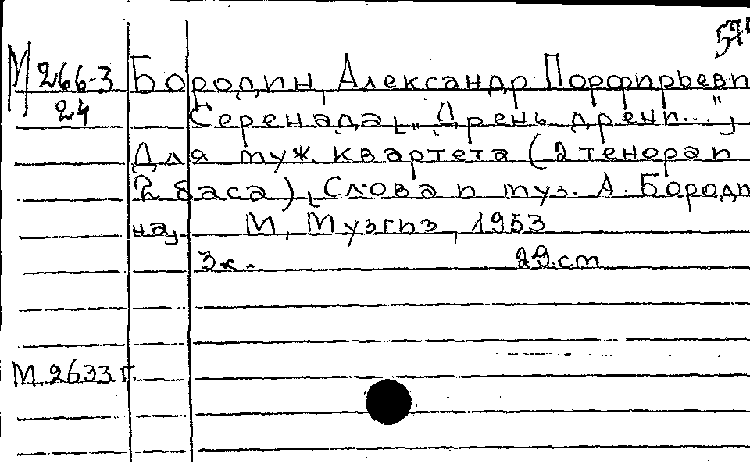 М 266-3
24
Бородин, Александр Порфирьевич
Серенада[„Дрень дрень..."]
Для муж. квартета (2 тенора и
2 баса), Слова и муз. А. Бороди
на.   М., Музгиз, 1953
3 к.   29.cm
М 2633 г.